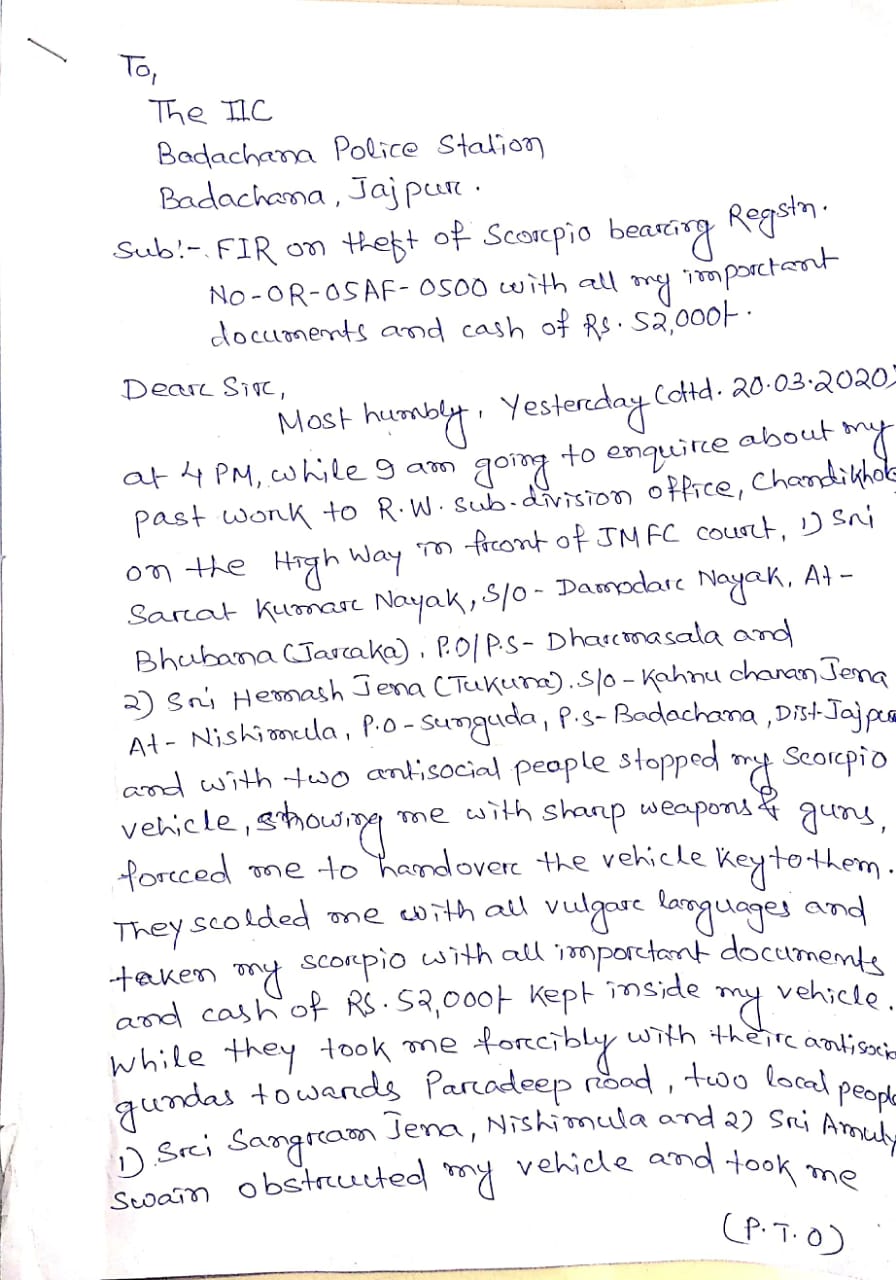 To,
The IIC
Badachana Police Station
Badachana, Jajpur.
Sub:-. FIR on theft of Scorpio bearing Regstn.
No-OR-05AF-0500 with all my important
documents and cash of Rs. 52,000/-.
Dear Sir,
Most humbly, Yesterday (dtd. 20.03.2020)
at 4 PM, while I am going to enquire about my
past work to R.W. sub-division office, Chandikhole
on the High Way in front of JMFC court, 1) Sri
Sarat Kumar Nayak, S/o - Damodar Nayak, At -
Bhubana (Jaraka), P.O/P.S- Dharmasala and
2) Sri Hemash Jena (Tukuna). S/o - Kahnu charan Jena
At - Nishimula, P.O - Sunguda, P.S- Badachana, Dist-Jajpur
and with two antisocial people stopped my Scorpio
vehicle, showing me with sharp weapons & guns,
forced me to handover the vehicle key to them.
They scolded me with all vulgar languages and
taken my scorpio with all important documents
and cash of Rs. 52,000/- kept inside my vehicle.
While they took me forcibly with their antisocia
gundas towards Paradeep road, two local people
1) Sri Sangram Jena, Nishimula and 2) Sri Amuly
Swain obstructed my vehicle and took me
(P.T.O)